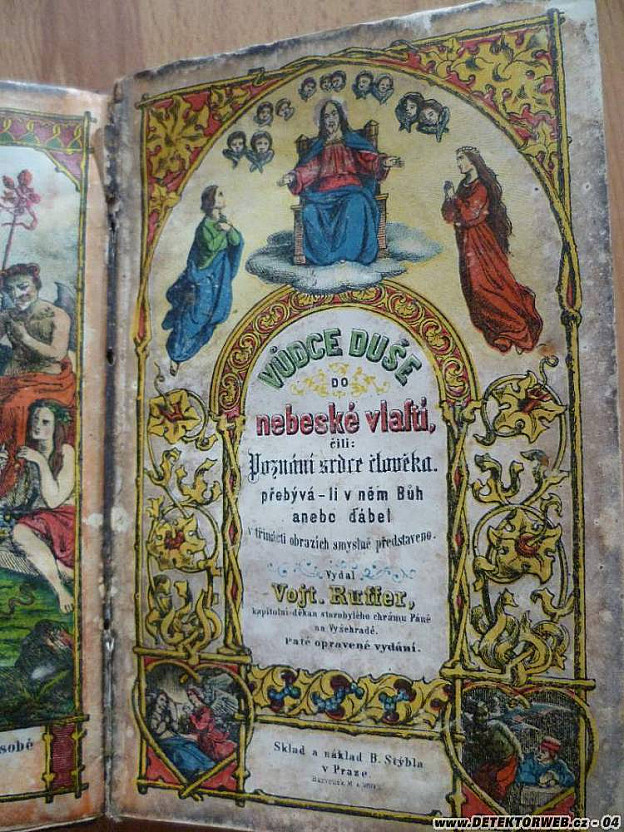 VŮDCE DUŠE
DO
nebeské vlasti,
čili:
Poznání srdce člověka.
přebývá-li v něm Bůh
anebo ďábel
v třinácti obrazích smyslně představeno.
Vydal
Vojt. Ruffer,
kapitolní děkan starobylého chrámu Páně
na Vyšehradě.
Páté opravené vydání.
Sklad a náklad B. Stýbla
v Praze
sobě
www.DETEKTORWEB.cz - 04